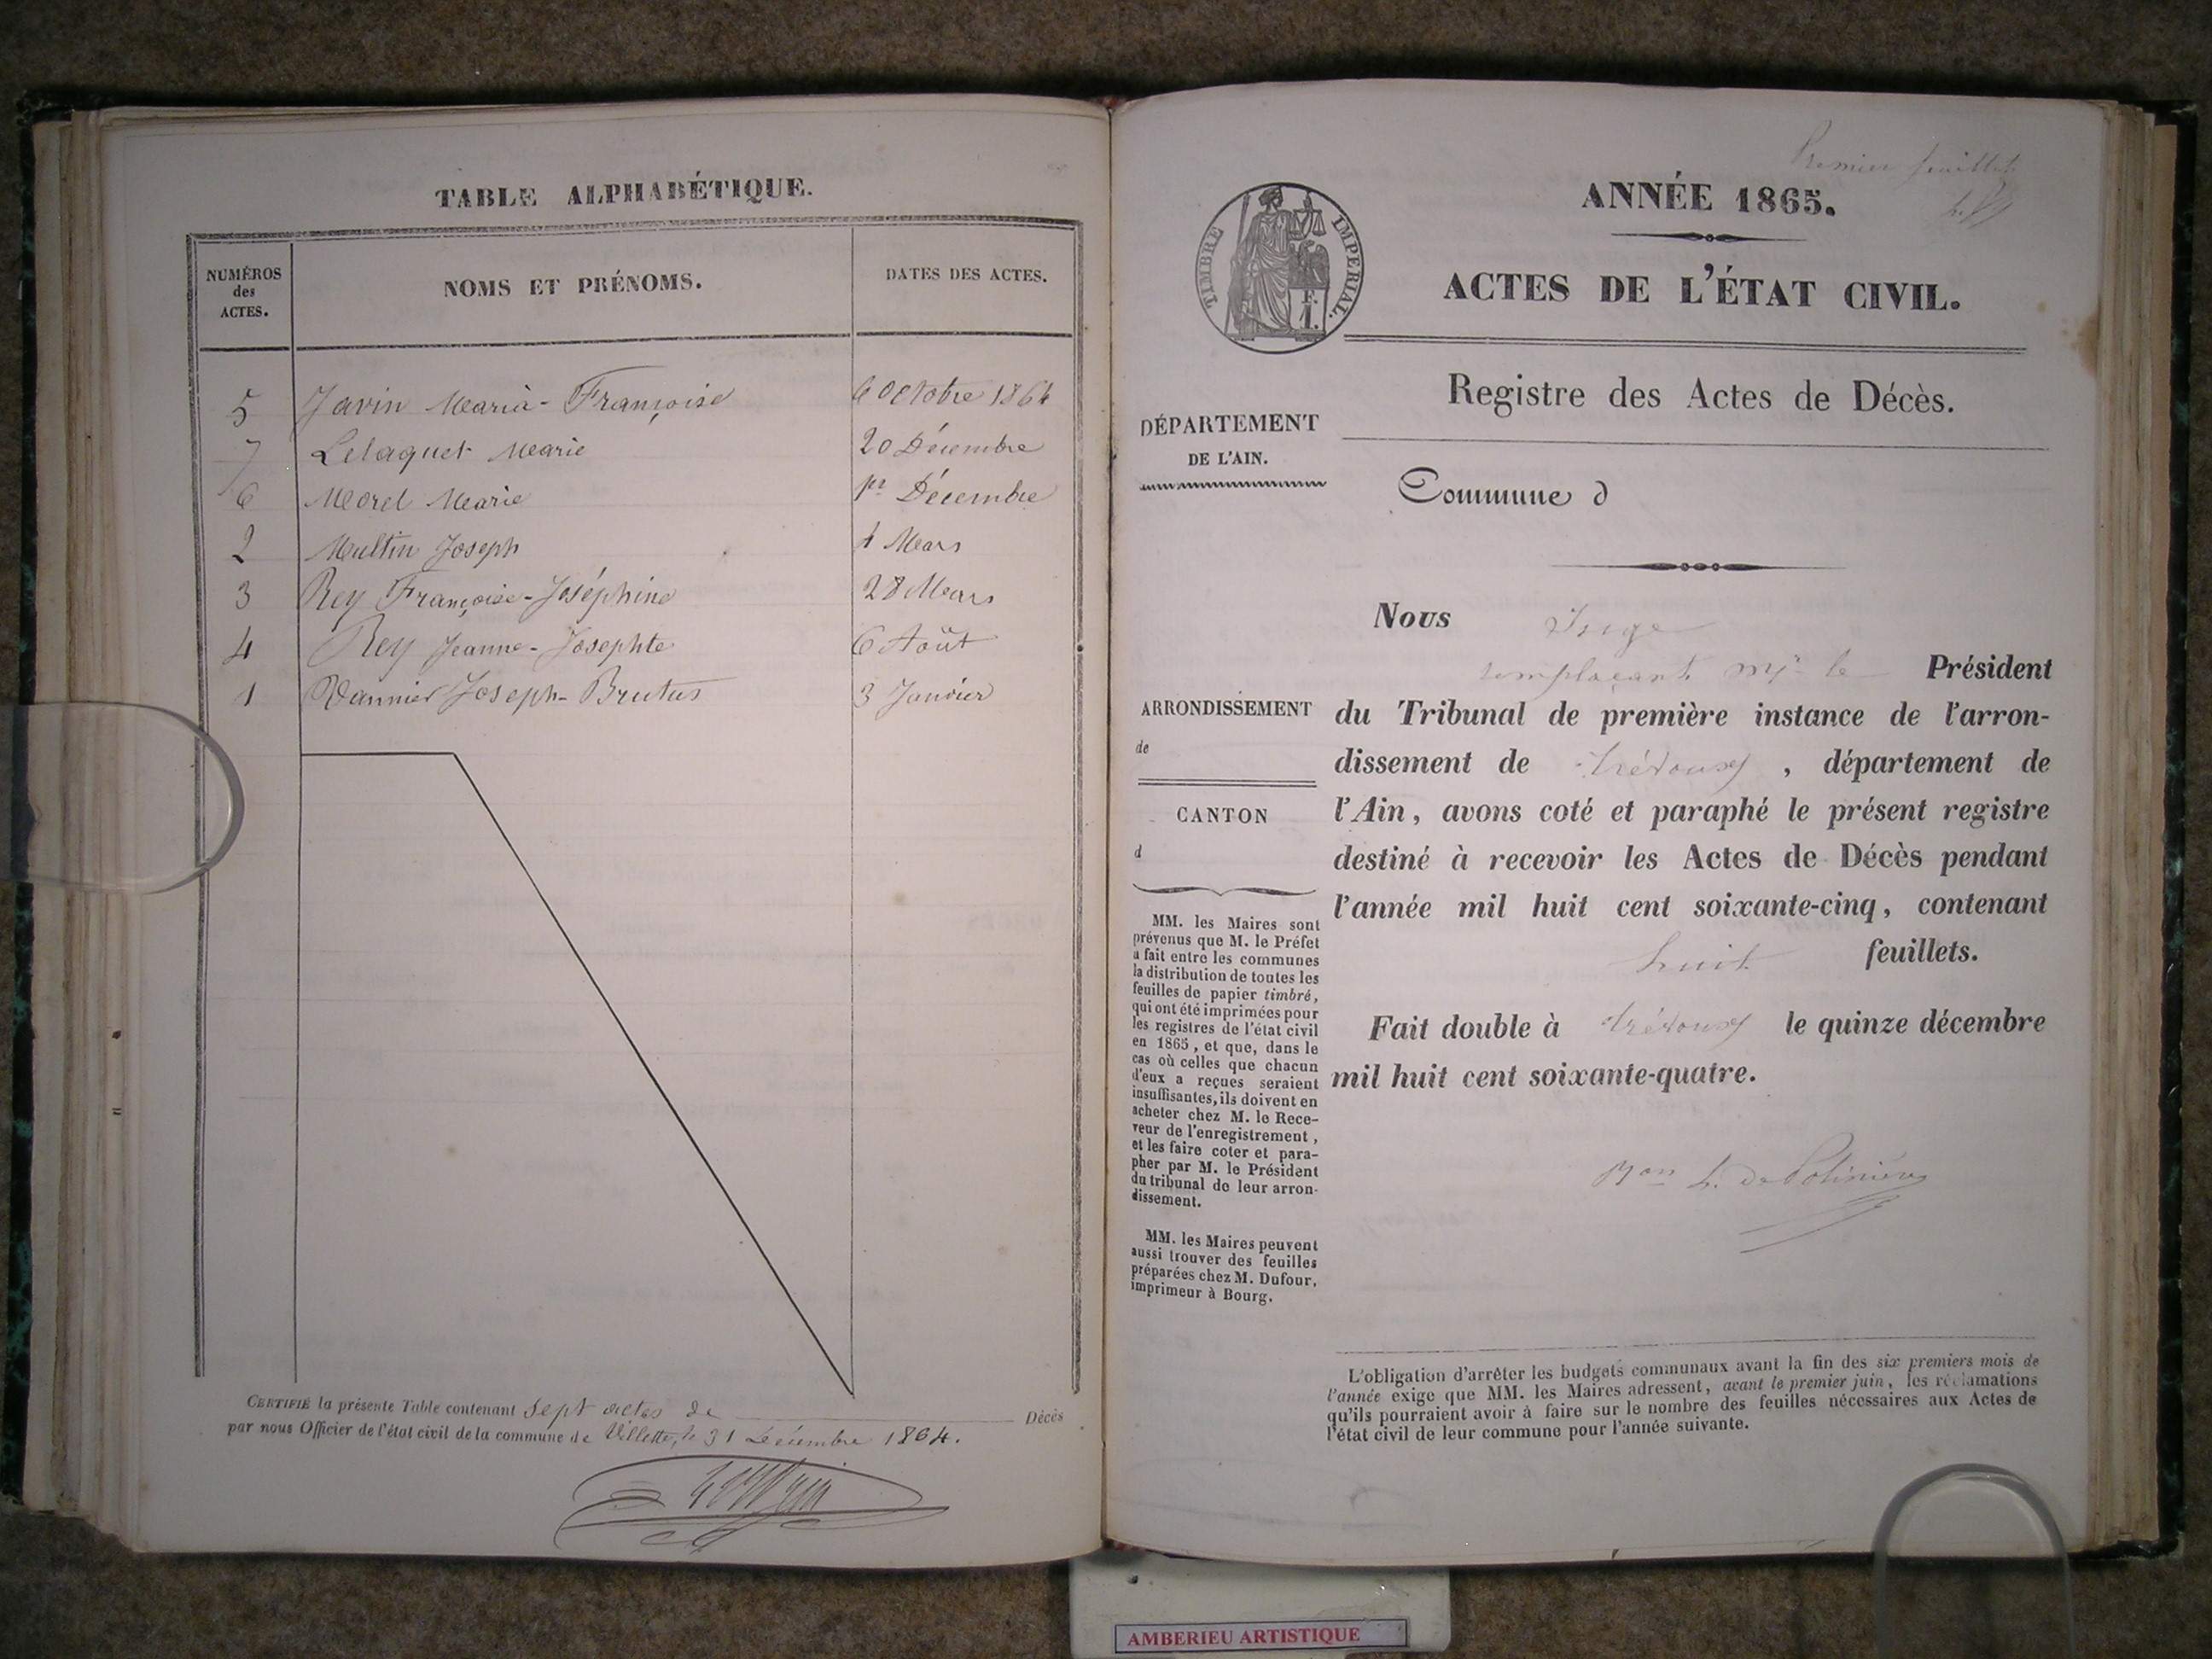 TABLE ALPHABÉTIQUE.
NUMÉROS
des
ACTES.
NOMS ET PRÉNOMS.
DATES DES ACTES.
5 Javin Maria-Françoise 6 Octobre 1864
7 Lelaquet Marie 20 Décembre
6 Morel Marie 1er Décembre
2 Multin Joseph 4 Mars
3 Rey Françoise-Joséphine 28 Mars
4 Rey Jeanne-Josephte 6 Août
1 Vannier Joseph-Brutus 3 Janvier
CERTIFIÉ la présente Table contenant sept actes de Décès
par nous Officier de l'état civil de la commune de Villette, le 31 Décembre 1864.
Premier feuillet
ANNÉE 1865.
TIMBRE IMPERIAL.
ACTES DE L'ÉTAT CIVIL.
Registre des Actes de Décès.
DÉPARTEMENT
DE L'AIN.
Commune d
Nous Juge
remplaçant Mr le Président
du Tribunal de première instance de l'arron-
dissement de Trévoux, département de
l'Ain, avons coté et paraphé le présent registre
destiné à recevoir les Actes de Décès pendant
l'année mil huit cent soixante-cinq, contenant
huit feuillets.
Fait double à Trévoux le quinze décembre
mil huit cent soixante-quatre.
Bon L. de Polinière
ARRONDISSEMENT
de
CANTON
d
MM. les Maires sont
prévenus que M. le Préfet
a fait entre les communes
la distribution de toutes les
feuilles de papier timbré,
qui ont été imprimées pour
les registres de l'état civil
en 1865, et que, dans le
cas où celles que chacun
d'eux a reçues seraient
insuffisantes, ils doivent en
acheter chez M. le Rece-
veur de l'enregistrement,
et les faire coter et para-
pher par M. le Président
du tribunal de leur arron-
dissement.
MM. les Maires peuvent
aussi trouver des feuilles
préparées chez M. Dufour,
imprimeur à Bourg.
L'obligation d'arrêter les budgets communaux avant la fin des six premiers mois de
l'année exige que MM. les Maires adressent, avant le premier juin, les réclamations
qu'ils pourraient avoir à faire sur le nombre des feuilles nécessaires aux Actes de
l'état civil de leur commune pour l'année suivante.
AMBERIEU ARTISTIQUE